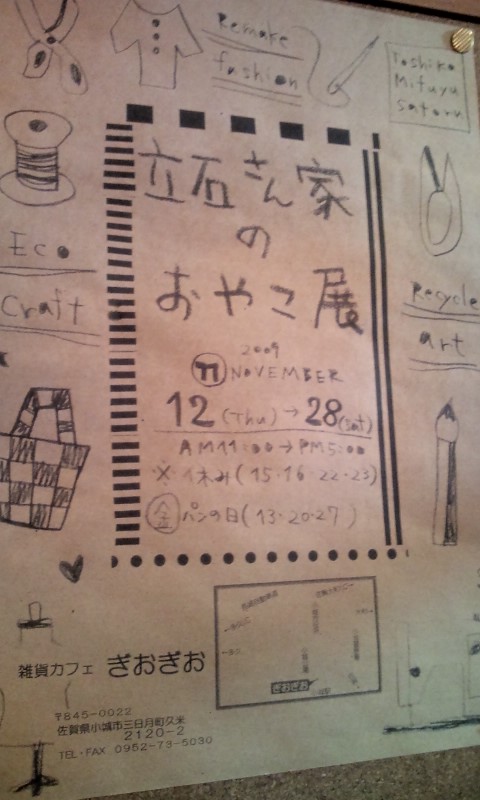 Remake
fashion
Toshiko
Mifuyu
Satoru
立石さん家
の
おやこ展
Eco
Craft
Recycle
art
2009
11 NOVEMBER
12 (Thu) → 28 (sat)
AM11:00→PM5:00
※・休み(15・16・22・23)
金 パンの日(13・20・27)
雑貨カフェ ぎおぎお
〒845-0022
佐賀県小城市三日月町久米
2120-2
TEL・FAX 0952-73-5030
ぎおぎお